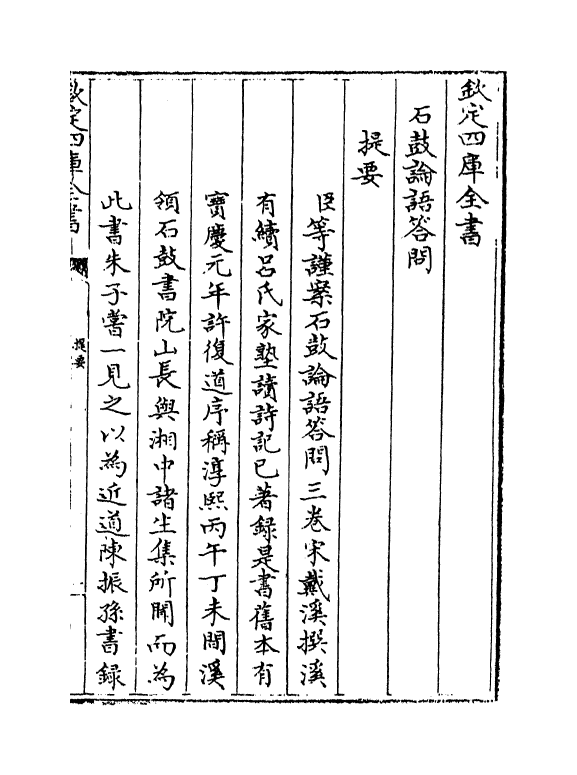 欽定四庫全書
石鼓論語答問
提要
臣等謹案石鼓論語答問三卷宋戴溪撰溪
有續吕氏家塾讀詩記已著録是書舊本有
寶慶元年許復道序稱淳熙丙午丁未間溪
領石鼓書院山長與湘中諸生集所聞而為
此書朱子嘗一見之以為近道陳振孫書録
欽定四庫全書
提要